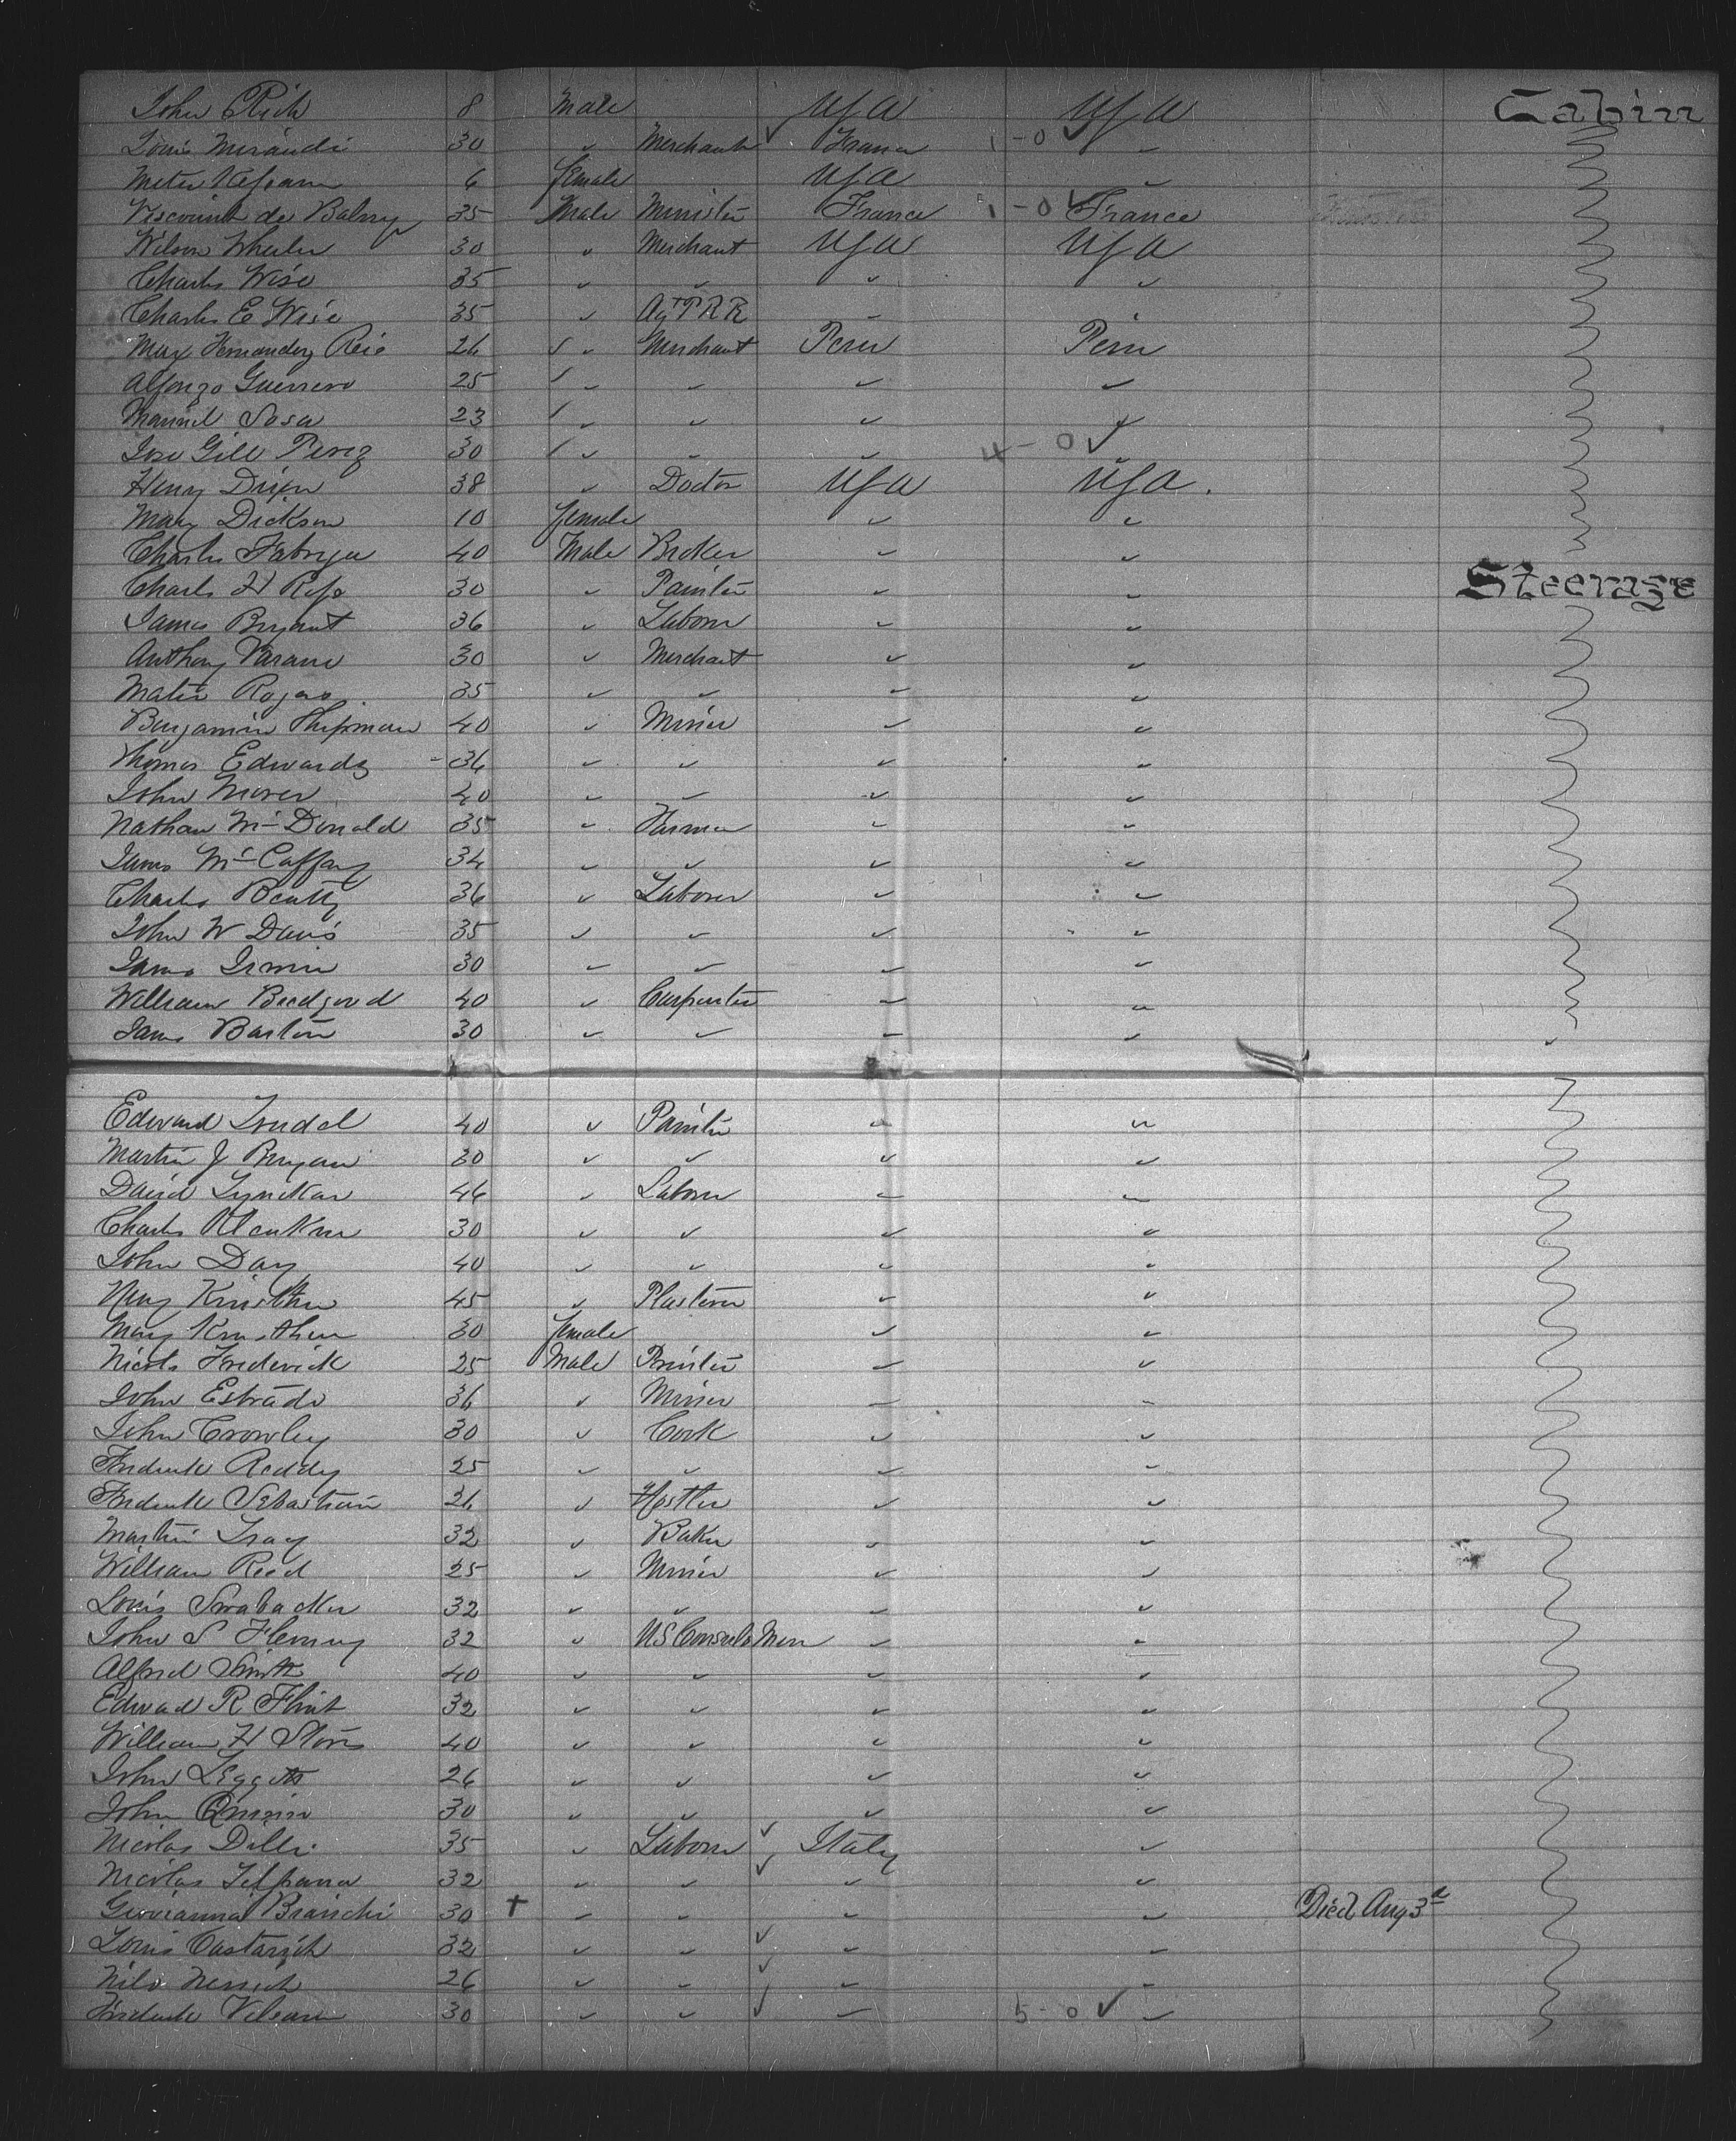 John Rich 8 Male USA USA Cabin
Louis 30 " Merchant ✓ France 1 - 0 ✓ "
6 female USA "
Viscount de Balny 35 Male Minister France 1 - 0 ✓ France
Wilson Wheeler 30 " Merchant USA USA
Charles Wise 35 " " " "
Charles E Wise 35 " Agt PRR " "
Max Hernandez Reis 26 ✓ " Merchant Peru Peru
Alfonzo Guerrero 25 ✓ " " " "
Manuel Sosa 23 ✓ " " " "
Jose Gill Perez 30 ✓ " " " 4 - 0 ✓ "
Henry 38 " Doctor USA USA.
Mary Dickson 10 female " "
Charles Fabryea 40 Male Broker " "
Charles H 30 " Painter " " Steerage
James Bryant 36 " Laborer " "
Anthony 30 " Merchant " "
Rogers 35 " " " "
Benjamin Shipman 40 " Miner " "
Thomas Edwards 36 " " " "
John 40 " " " "
Nathan McDonald 35 " Farmer " "
James McCaffary 34 " " " "
Charles Beatty 36 " Laborer " "
John W Davis 35 " " " "
James Irwin 30 " " " "
William Bedgood 40 " Carpenter " "
James Barton 30 " " " "
Edward Trudel 40 " Painter " "
Martin J Bryan 30 " " " "
David 46 " Laborer " "
Charles 30 " " " "
John Day 40 " " " "
45 " Plasterer " "
Mary 30 female " "
Frederick 25 Male Printer " "
John Estrado 36 " Miner " "
John Crowley 30 " Cook " "
Frederick Reddy 25 " " " "
Frederick Sebastian 26 " Hostler " "
Martin Tracy 32 " Baker " "
William Reed 25 " Miner " "
Louis 32 " " " "
John S Fleming 32 " US Consuls Men " "
Alfred Smith 40 " " " "
Edward R Flint 32 " " " "
William H 40 " " " "
John Leggett 26 " " " "
John 30 " " " "
Nicolas Delli 35 " Laborer ✓ Italy "
Nicolas 32 " " ✓ " "
Bianchi 30 + " " " " Died Aug 3d
Louis 32 " " ✓ " "
Nilo 26 " " ✓ " "
Frederick 30 " " ✓ " 5 - 0 ✓ "